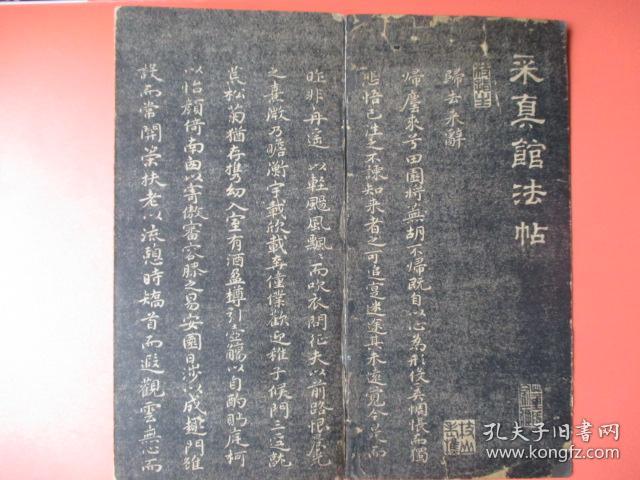 采真館法帖
歸去来辭
歸去来兮田園將蕪胡不歸既自以心為形役奚惆悵而獨
悲悟已往之不諫知来者之可追寔迷途其未遠覺今是而
昨非舟遥以輕颺風飄而吹衣問征夫以前路恨晨
之熹微乃瞻衡宇載欣載奔僮僕歡迎稚子候門三逕就
荒松菊猶存携幼入室有酒盈罇引壺觴以自酌眄庭柯
以怡顔倚南窗以寄傲審容膝之易安園日涉以成趣門雖
設而常關策扶老以流憩時矯首而遐觀雲無心而
孔夫子旧书网